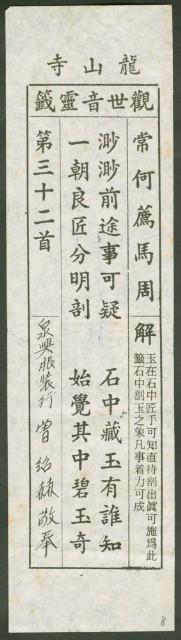 龍山寺
觀世音靈籤
常何薦馬周
解
玉在石中匠手可知直待剖出眞可施爲此
籤石中剖玉之象凡事着力可成
渺渺前途事可疑
石中藏玉有誰知
一朝良匠分明剖
始覺其中碧玉奇
第三十二首
泉興服裝行
曾紹赫敬奉
8